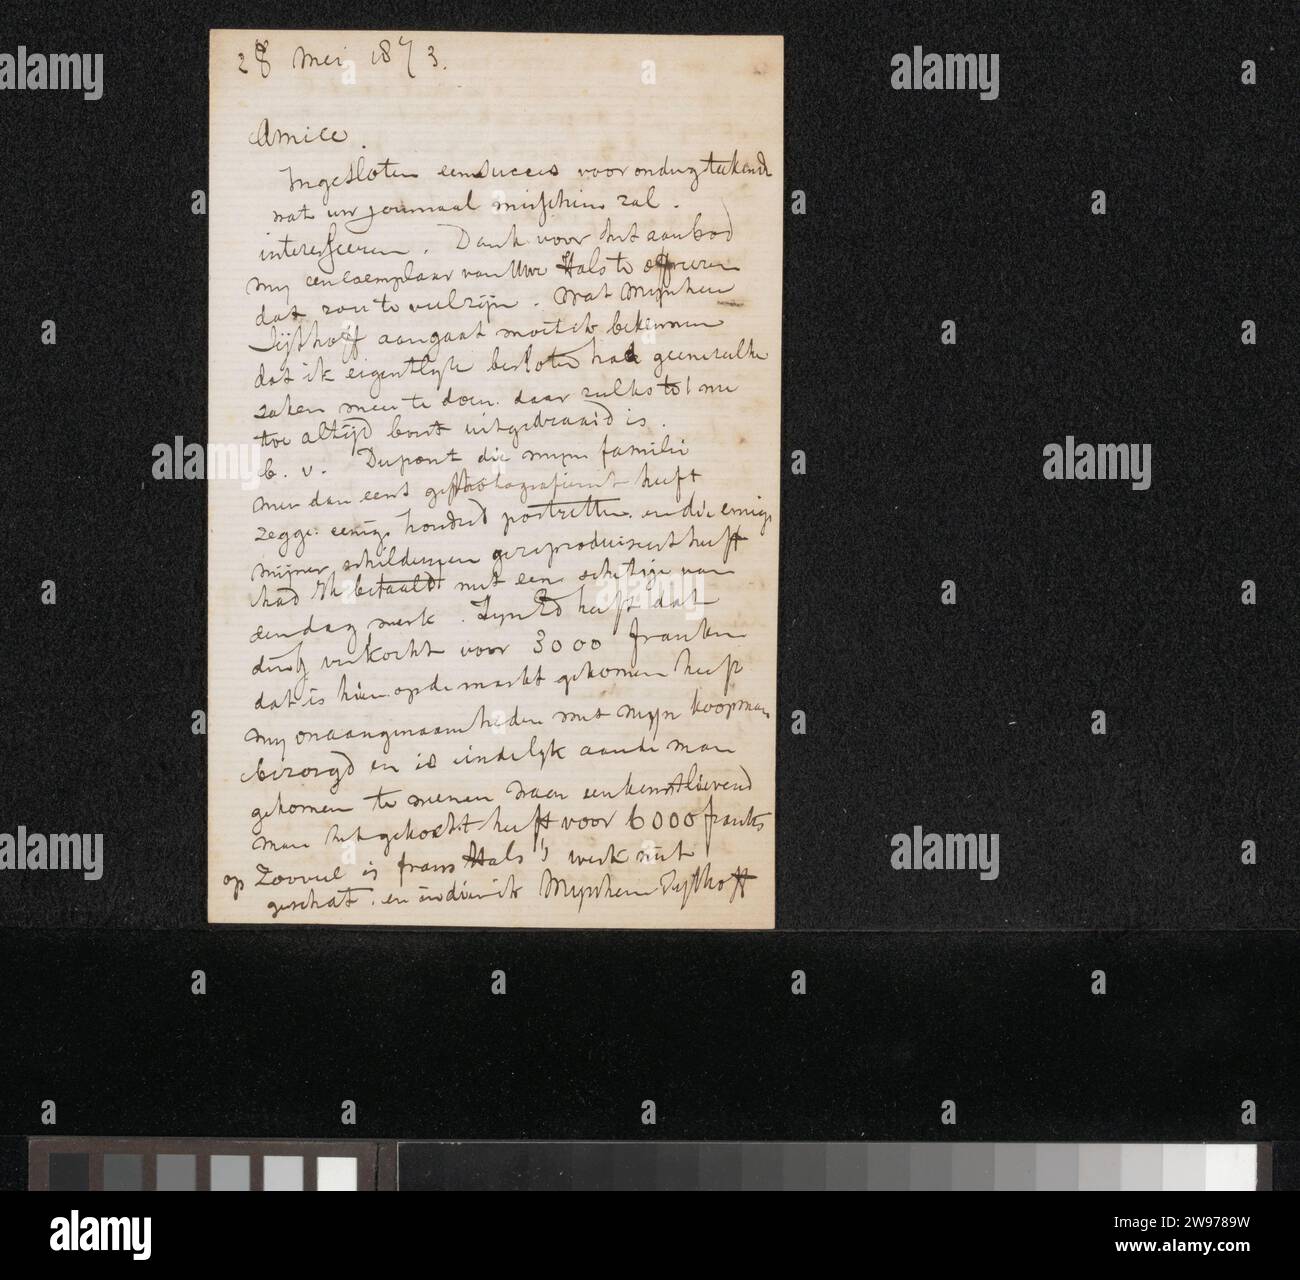 28 Mei 1873.
Amice.
Ingesloten een succes voor ondergeteekende
wat uw journaal misschien zal.
interesseeren. Dank voor het aanbod
my een exemplaar van Uwe Hals te offreeren
dat zou te veel zijn. Wat Mynheer
Sijthoff aangaat moet ik bekennen
dat ik eigentlyk besloten had geene zulke
zaken meer te doen. daar zulks tot nu
toe altijd bout uitgedraaid is.
b. v. Dupont die myne familie
meer dan eens gephotografieert heeft
zegge: eenige honderd portretten. en die eenige
mijner schilderijen gereproduiseert heeft
had ik betaald met een schetsje van
een dag werk. Zyn Ed heeft dat
ding verkocht voor 3000 franken
dat is hier op de markt gekomen heeft
my onaangenaamheden met mijn koopman
bezorgd en is eindelyk aan de man
gekomen te weten een kunstlievend
man het gekocht heeft voor 6000 franks
op Zooveel is frans Hals's werk niet
geschat. en indien ik Mynheer Sijthoff
alamy
alamy
Image ID: 2W9789W
www.alamy.com